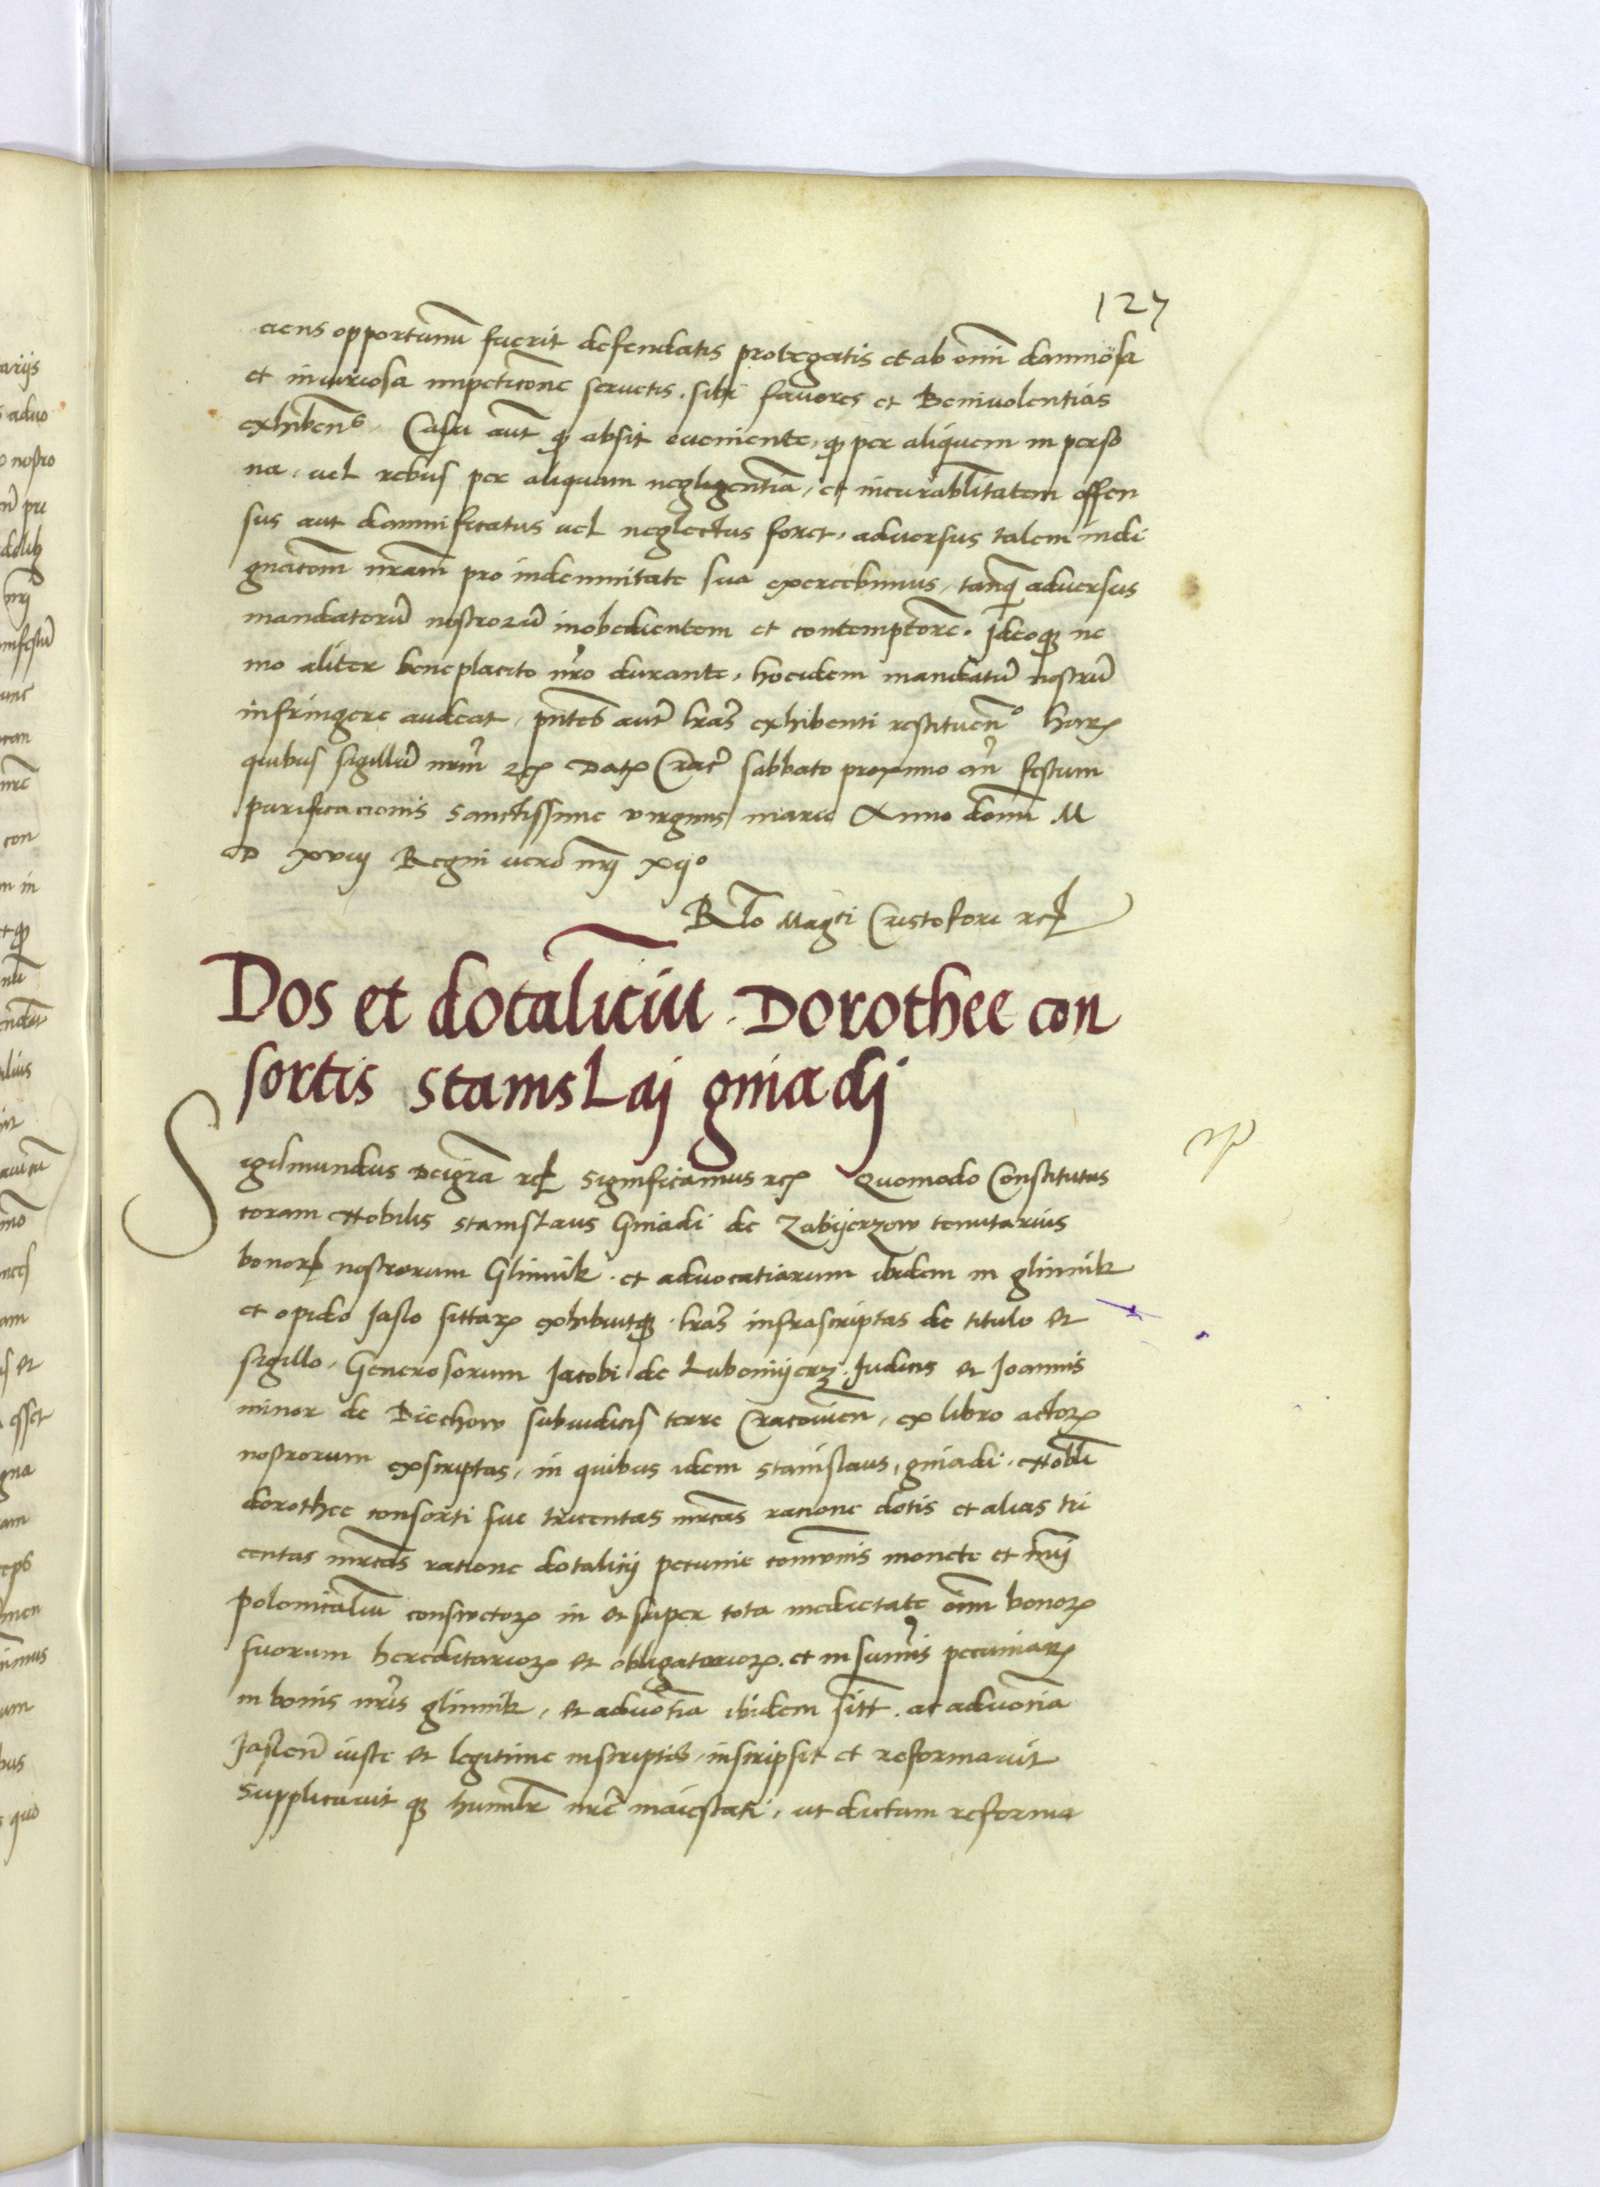 127
ciens opportunū fuerit defendatis protegatis et ab om̄i damnosa
et iniuriosa impeticōne seruetis. sibi fauores et Beniuolentias
exhibenˢ. Casu aut̄ qͩ absit eueniente, qͩ per aliquem in perso
na, uel rebus per aliquam negligentiā, et incurablitatem offen
sus aut damnificatus uel neglectus foret, aduersus talem indi
gnatōm nr̄am pro indemnitate sua exercebimus, tanq̄ aduersus
mandatorū nostrorū inobedientem et contemptorē. Ideoqꝫ ne
mo aliter beneplacito nr̄o durante, hocidem mandatū nostrū
infringere audeat, pn̄tes aut̄ lr̄as exhibenti restituenº harꝝ
quibus sigillū nr̄m rcꝫ Datꝝ Crac̄ sabbato proximo an̄ festum
purificacionis sanctissime virginis marie Anno domī M
D xviij Regni uero nr̄i xijº
Rlō Mag͞ci Cristofori rcꝫ
Dos et dotaliciū. Dorothee con
sortis stanisLai gniadj
Sigismundus Dei gr̄a rcꝫ significamus rcꝫ Quomodo Constitutus
coram Nobilis stanisLaus Gniadi de Zabijerzow tenutarius
bonorꝝ nostrorum Glinnik. et aduocatiarum ibidem in glinnik
et opido Jaslo sittarꝝ exhibuitqꝫ lr̄as infrascriptas de titulo et
sigillo, Generosorum Jacobi de Lubomijerz Judicis et Joannis
minor de Biechow subiudicis terre Cracouien̄, ex libro actorꝝ
nostrorum exscriptas, in quibus idem stanislaus, gniadi. Nobli
dorothee consorti sue tricentas mrcas ratione dotis et alias tri
centas mrcas ratione dotalicij pecunie com̄unis monete et nūi
polonicaliū consuetorꝝ in et super tota medietate om̄m bonorꝝ
suorum hereditariorꝝ et obligatoriorꝝ. et in sum̄is pecuniarꝝ
in bonis nr̄is glinnik, et aduōtia ibidem sitt. ac aduōtia
Jaslen̄ iuste et legitime inscriptis, inscripsit et reformauit
Supplicauit qꝫ humilr̄ nr̄e maiestati, ut dictam reforma